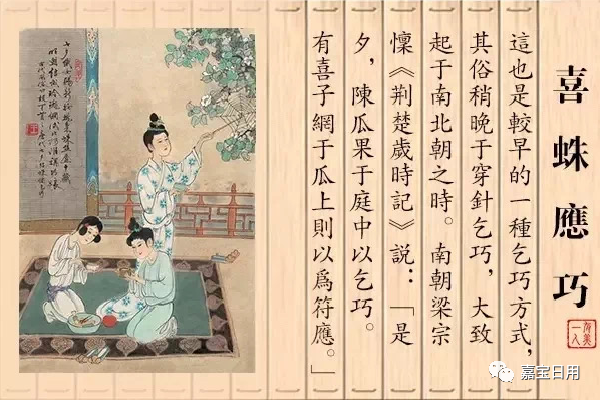 喜蛛應巧
這也是較早的一種乞巧方式，
其俗稍晚于穿針乞巧，大致
起于南北朝之時。南朝梁宗
懍《荆楚歲時記》説：「是
夕，陳瓜果于庭中以乞巧。
有喜子網于瓜上則以爲符應。」
嘉宝日用